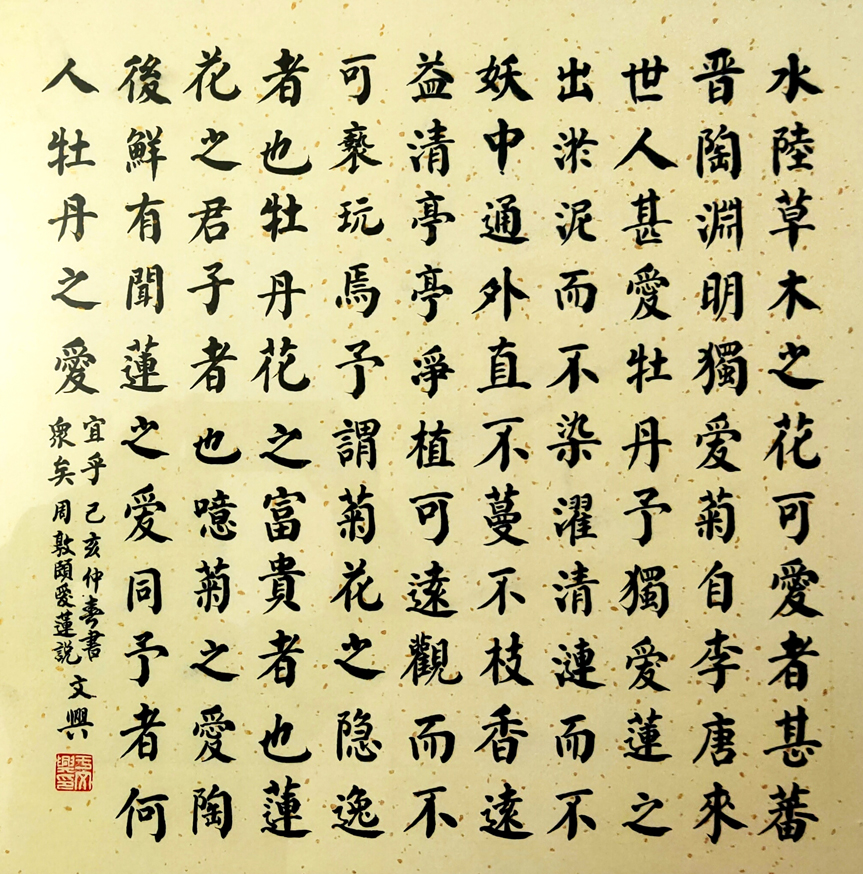 水陸草木之花可愛者甚蕃
晋陶淵明獨爱菊自李唐來
世人甚愛牡丹予獨爱蓮之
出淤泥而不染濯清漣而不
妖中通外直不蔓不枝香遠
益清亭亭淨植可遠觀而不
可褻玩焉予謂菊花之隐逸
者也牡丹花之富貴者也蓮
花之君子者也噫菊之愛陶
後鮮有聞蓮之愛同予者何
人牡丹之愛
宜乎
衆矣
己亥仲春書
周敦頤愛蓮説
文興